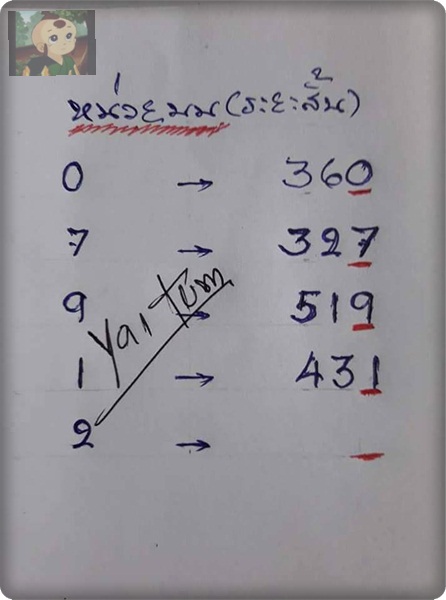 หน่วยบน (ระยะสั้น)
0 → 360
7 → 327
9 → 519
1 → 431
2 →
Yai Tum